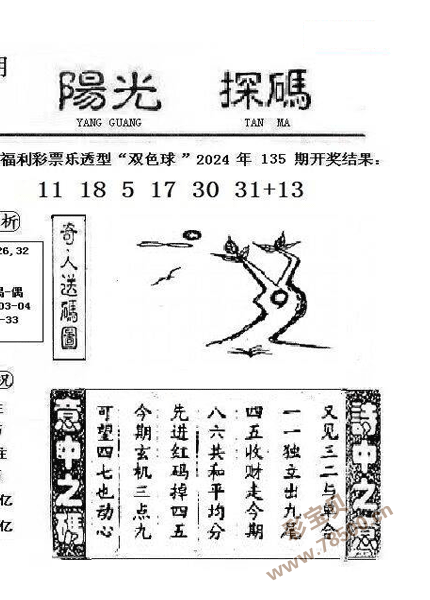 陽光 探碼
YANG GUANG TAN MA
福利彩票乐透型“双色球”2024 年 135 期开奖结果:
11 18 5 17 30 31+13
析
26,32
-偶
03-04
-33
亿
亿
奇·人送碼圖
又见三二与单合
一一独立出九尾
四五收财走今期
八六共和平均分
先进红码掉四五
今期玄机三点九
可望四七也动心
意中之
中之
www.78500.cn